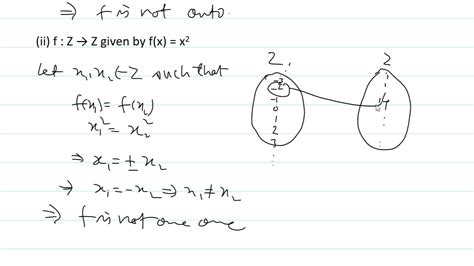 ⇒ f is not onto.
(ii) f : Z → Z given by f(x) = x²
Let x₁ x₂ ∈ Z such that
f(x₁) = f(x₂)
x₁² = x₂²
⇒ x₁ = ± x₂
⇒ x₁ = -x₂ ⇒ x₁ ≠ x₂
⇒ f is not one one
Z
-2
-1
0
1
2
3
⋮
Z
4
⋮